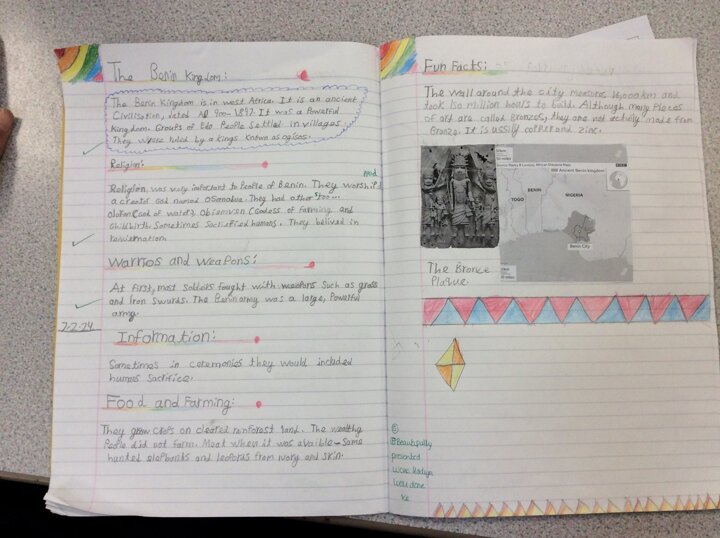 The Benin Kingdom:
The Benin Kingdom is in west Africa. It is an ancient
Civilisation, dated AD 900-1897. It was a Powerful
Kingdom. Groups of Edo People settled in villages.
They were ruled by a kings known as ogisos.
Religion:
Religion was very important to People of Benin. They worship'd
a creator God named Osanobua. They had other too...
olokun (God of water). Obiemwen (Godess of farming and
childbirth. Sometimes Sacrificed humans. They belived in
reincirnation
Warrios and Weapons:
At First, most Soldiers fought with weapons Such as
and Iron Swords. The Benin army was a large, Powerful
army.
7.2.24
Information:
Sometimes in ceremonies they would included
human Sacrifice.
Food and Farming:
They grow crops on cleared rainforest land. The wealthy
People did not farm. Meat when it was avaible - Some
hunted elephants and leopards from ivory and skin.
Fun Facts:
The wall around the city measures 16,000km and
took 150 million hours to build. Although many Pieces
of art are called bronzes, they are not actually made from
bronze. It is usslly copper and zinc.
Ancient Benin kingdom
BBC
TOGO
BENIN
NIGERIA
Benin City
The Bronze
Plaque.
Beautifully
presented
work
well done